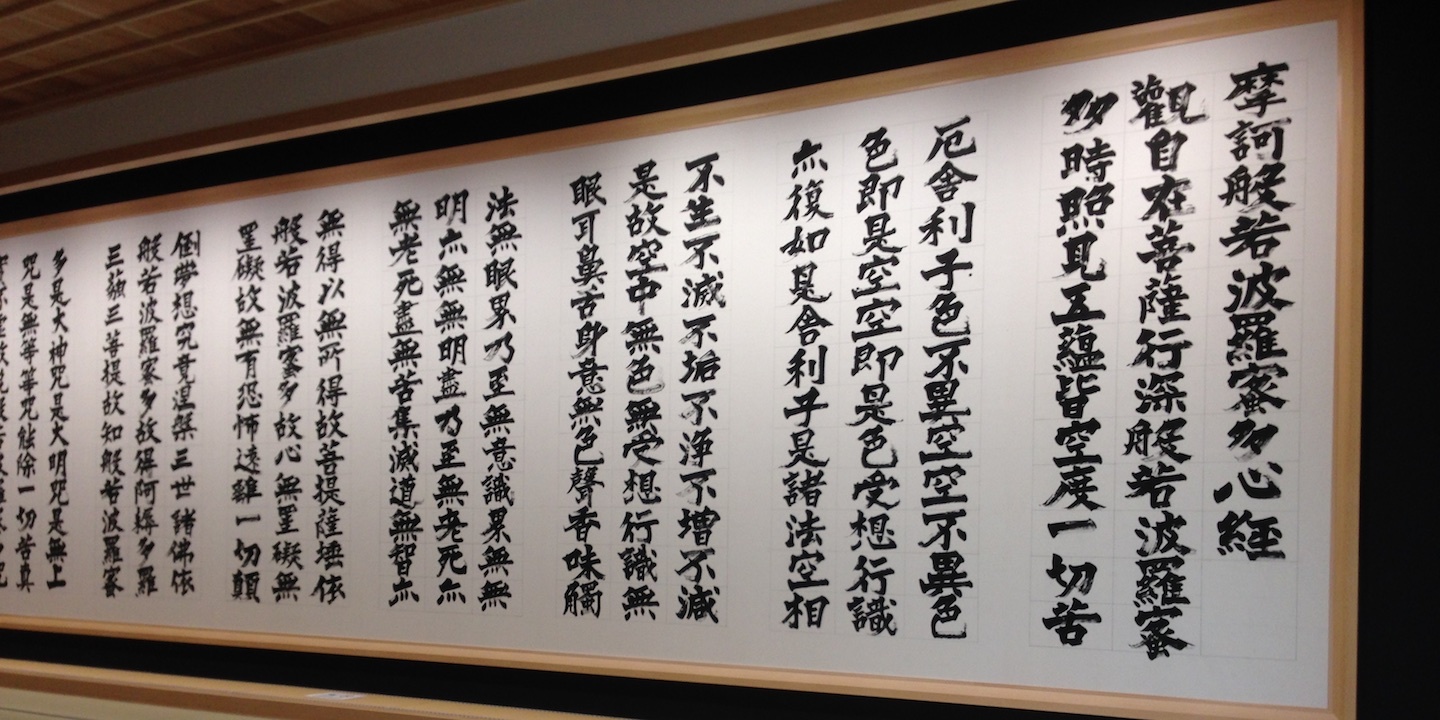 摩訶般若波羅蜜多心経
觀自在菩薩行深般若波羅蜜
多時照見五蘊皆空度一切苦
厄舎利子色不異空空不異色
色即是空空即是色受想行識
亦復如是舎利子是諸法空相
不生不滅不垢不浄不増不減
是故空中無色無受想行識無
眼耳鼻舌身意無色聲香味觸
法無眼界乃至無意識界無無
明亦無無明盡乃至無老死亦
無老死盡無苦集滅道無智亦
無得以無所得故菩提薩埵依
般若波羅蜜多故心無罣礙無
罣礙故無有恐怖遠離一切顛
倒夢想究竟涅槃三世諸佛依
般若波羅蜜多故得阿耨多羅
三藐三菩提故知般若波羅蜜
多是大神咒是大明咒是無上
咒是無等等咒能除一切苦真